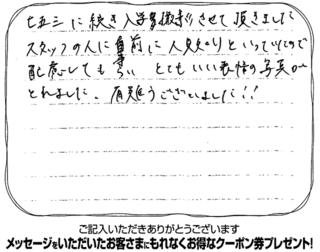 七五三に続き入学撮影させて頂きました
スタッフの人に事前に人見知りといっていたので
配慮してもらい とてもいい表情の写真が
とれました、有難うございました!!
ご記入いただきありがとうございます
メッセージをいただいたお客さまにもれなくお得なクーポン券プレゼント!